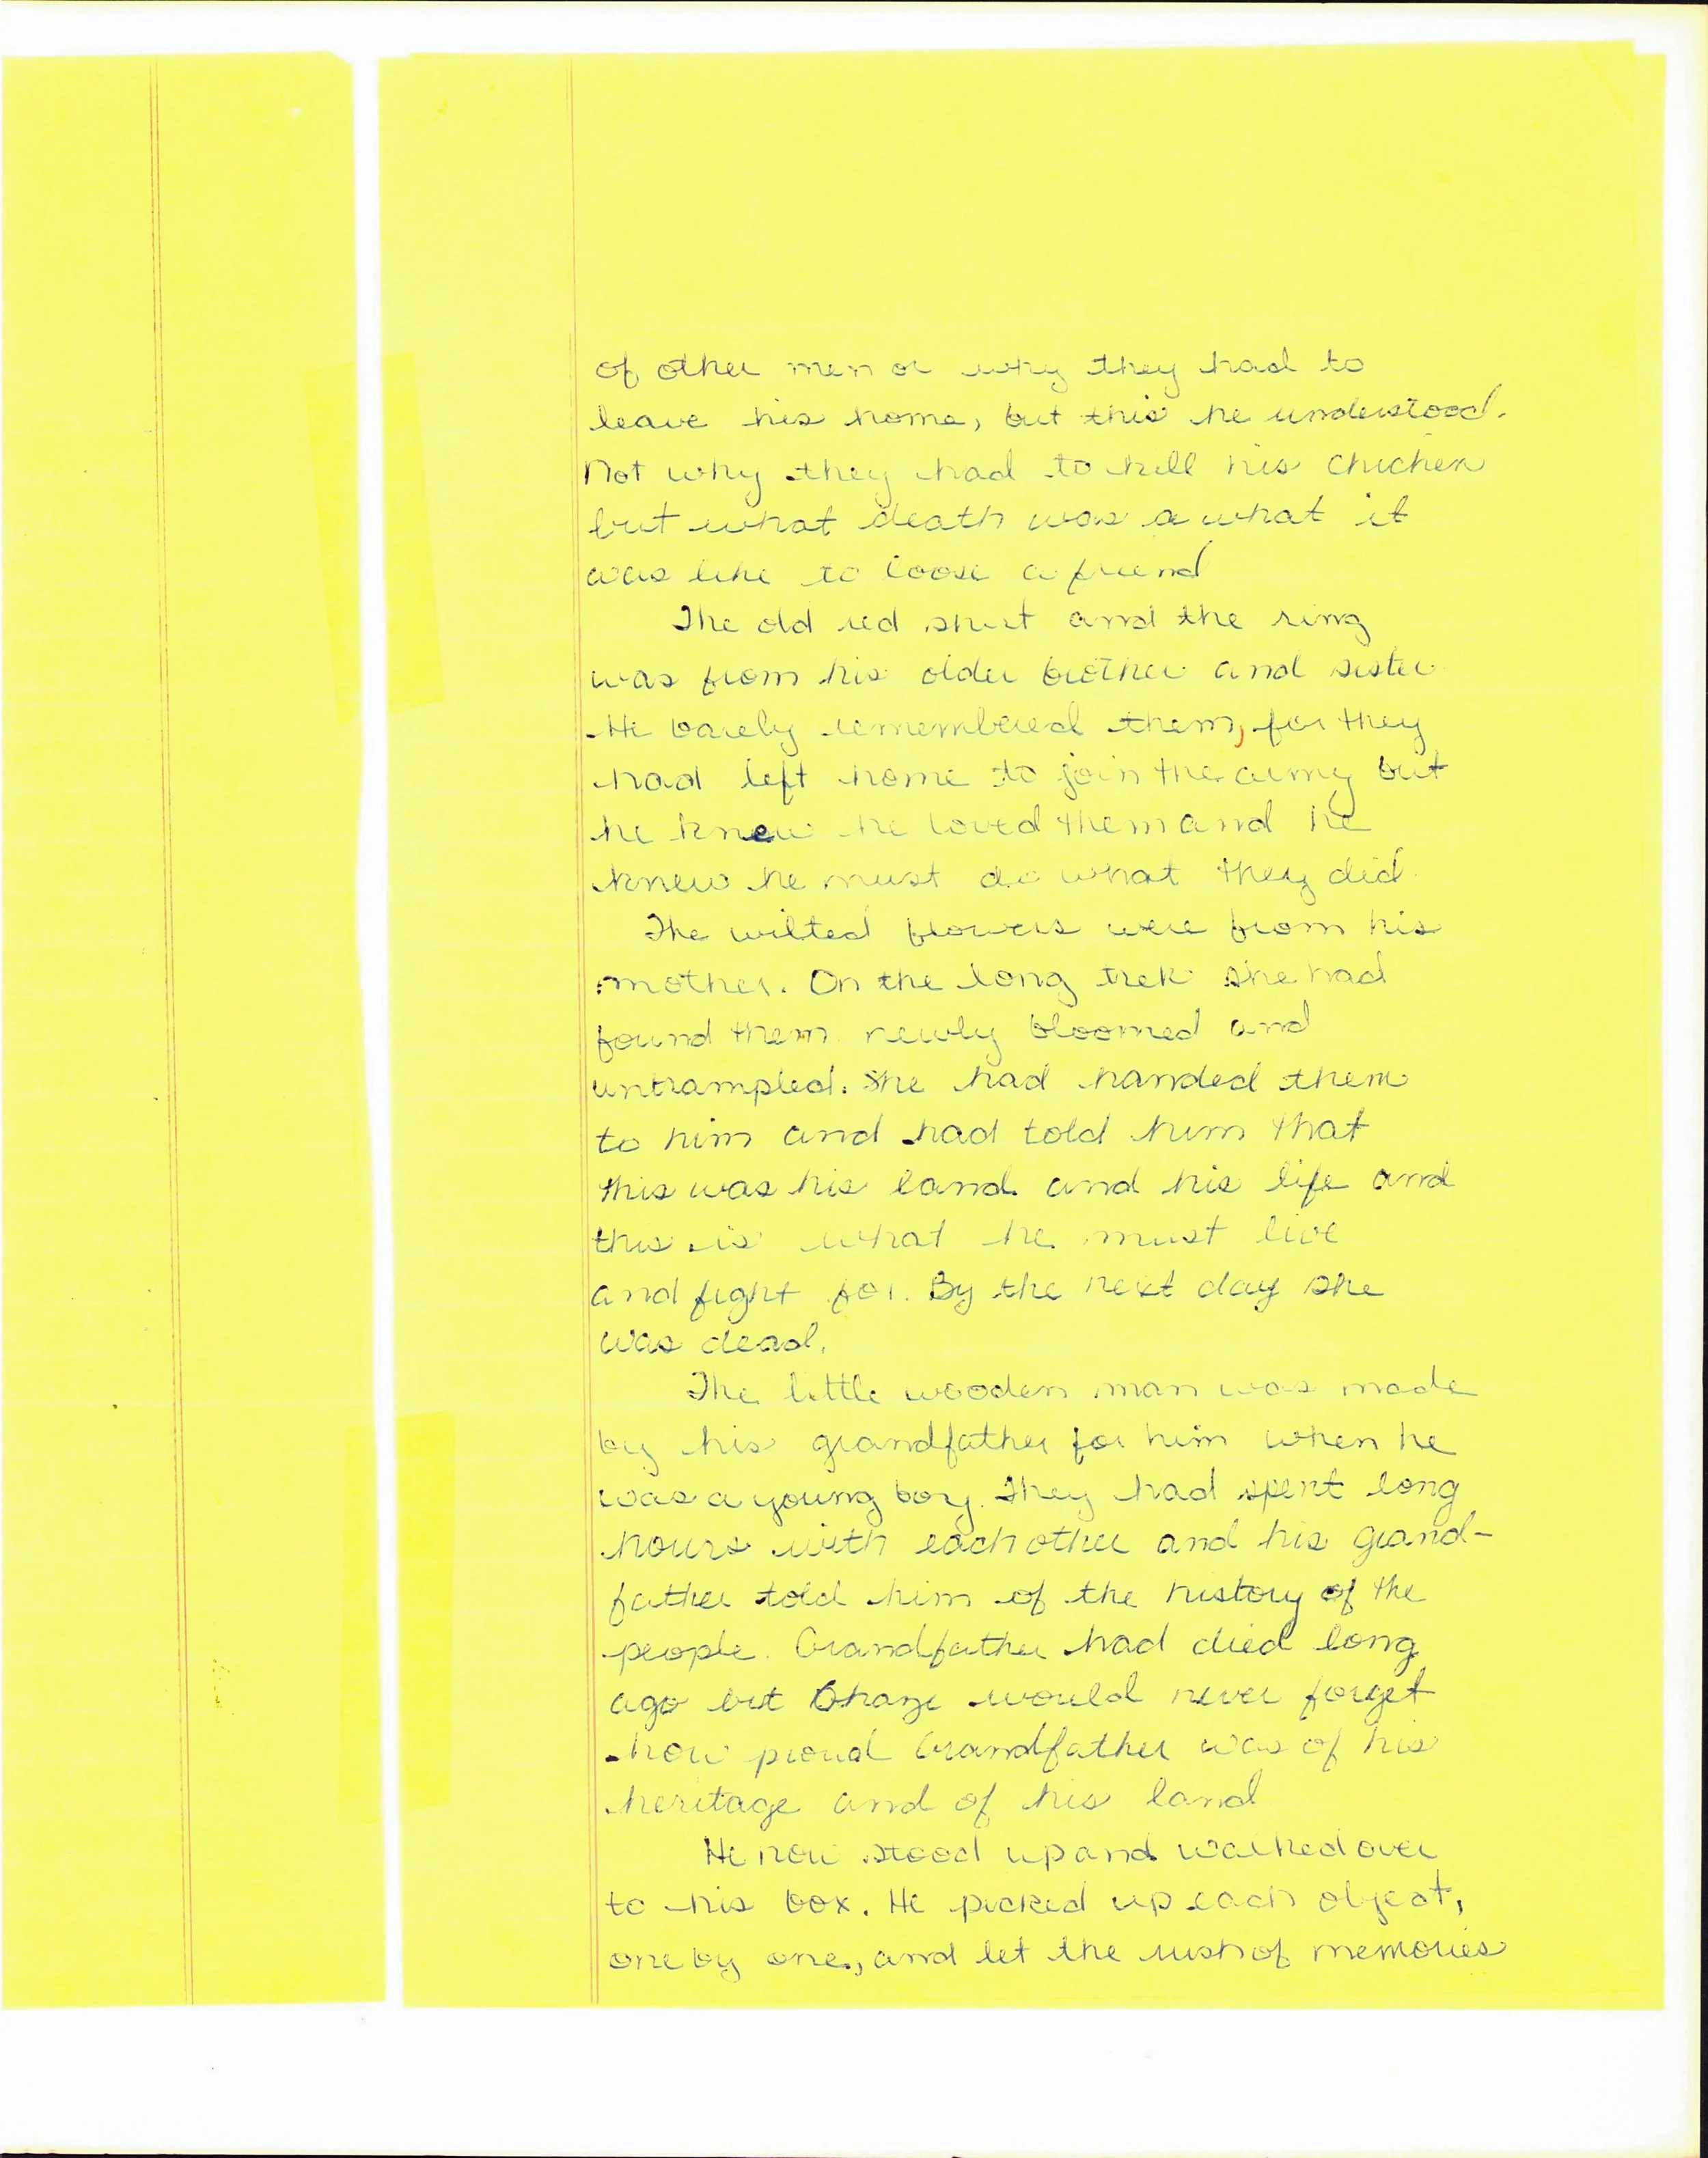 of other men or why they had to
leave his home, but this he understood.
Not why they had to kill his chicken
but what death was or what it
was like to loose a friend
The old red shirt and the ring
was from his older brother and sister
He barely remembered them, for they
had left home to join the army but
he knew he loved them and he
knew he must do what they did.
The wilted flowers were from his
mother. On the long trek she had
found them newly bloomed and
untrampled. She had handed them
to him and had told him that
this was his land and his life and
this is what he must live
and fight for. By the next day she
was dead.
The little wooden man was made
by his grandfather for him when he
was a young boy. They had spent long
hours with each other and his grand-
father told him of the history of the
people. Grandfather had died long
ago but would never forget
how proud Grandfather was of his
heritage and of his land
He now stood up and walked over
to his box. He picked up each object,
one by one, and let the rush of memories